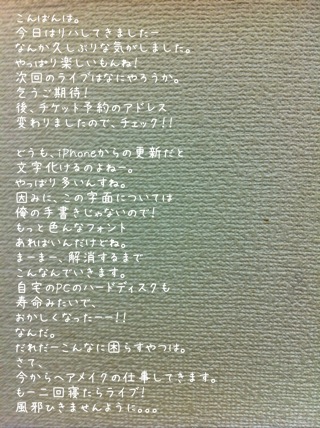 こんばんは。
今日はリハしてきましたー
なんか久しぶりな気がしました。
やっぱり楽しいもんね!
次回のライブはなにやろうか。
乞うご期待!
後、チケット予約のアドレス
変わりましたので、チェック!!
どうも、iPhoneからの更新だと
文字化けるのよねー。
やっぱり多いんすね。
因みに、この字面については
俺の手書きじゃないので!
もっと色んなフォント
あればいんだけどね。
まーまー、解消するまで
こんなんでいきます。
自宅のPCのハードディスクも
寿命みたいで、
おかしくなったーー!!
なんだ。
だれだーこんなに困らすやつは。
さて、
今からヘアメイクの仕事してきます。
もー二回寝たらライブ!
風邪ひきませんように。。。